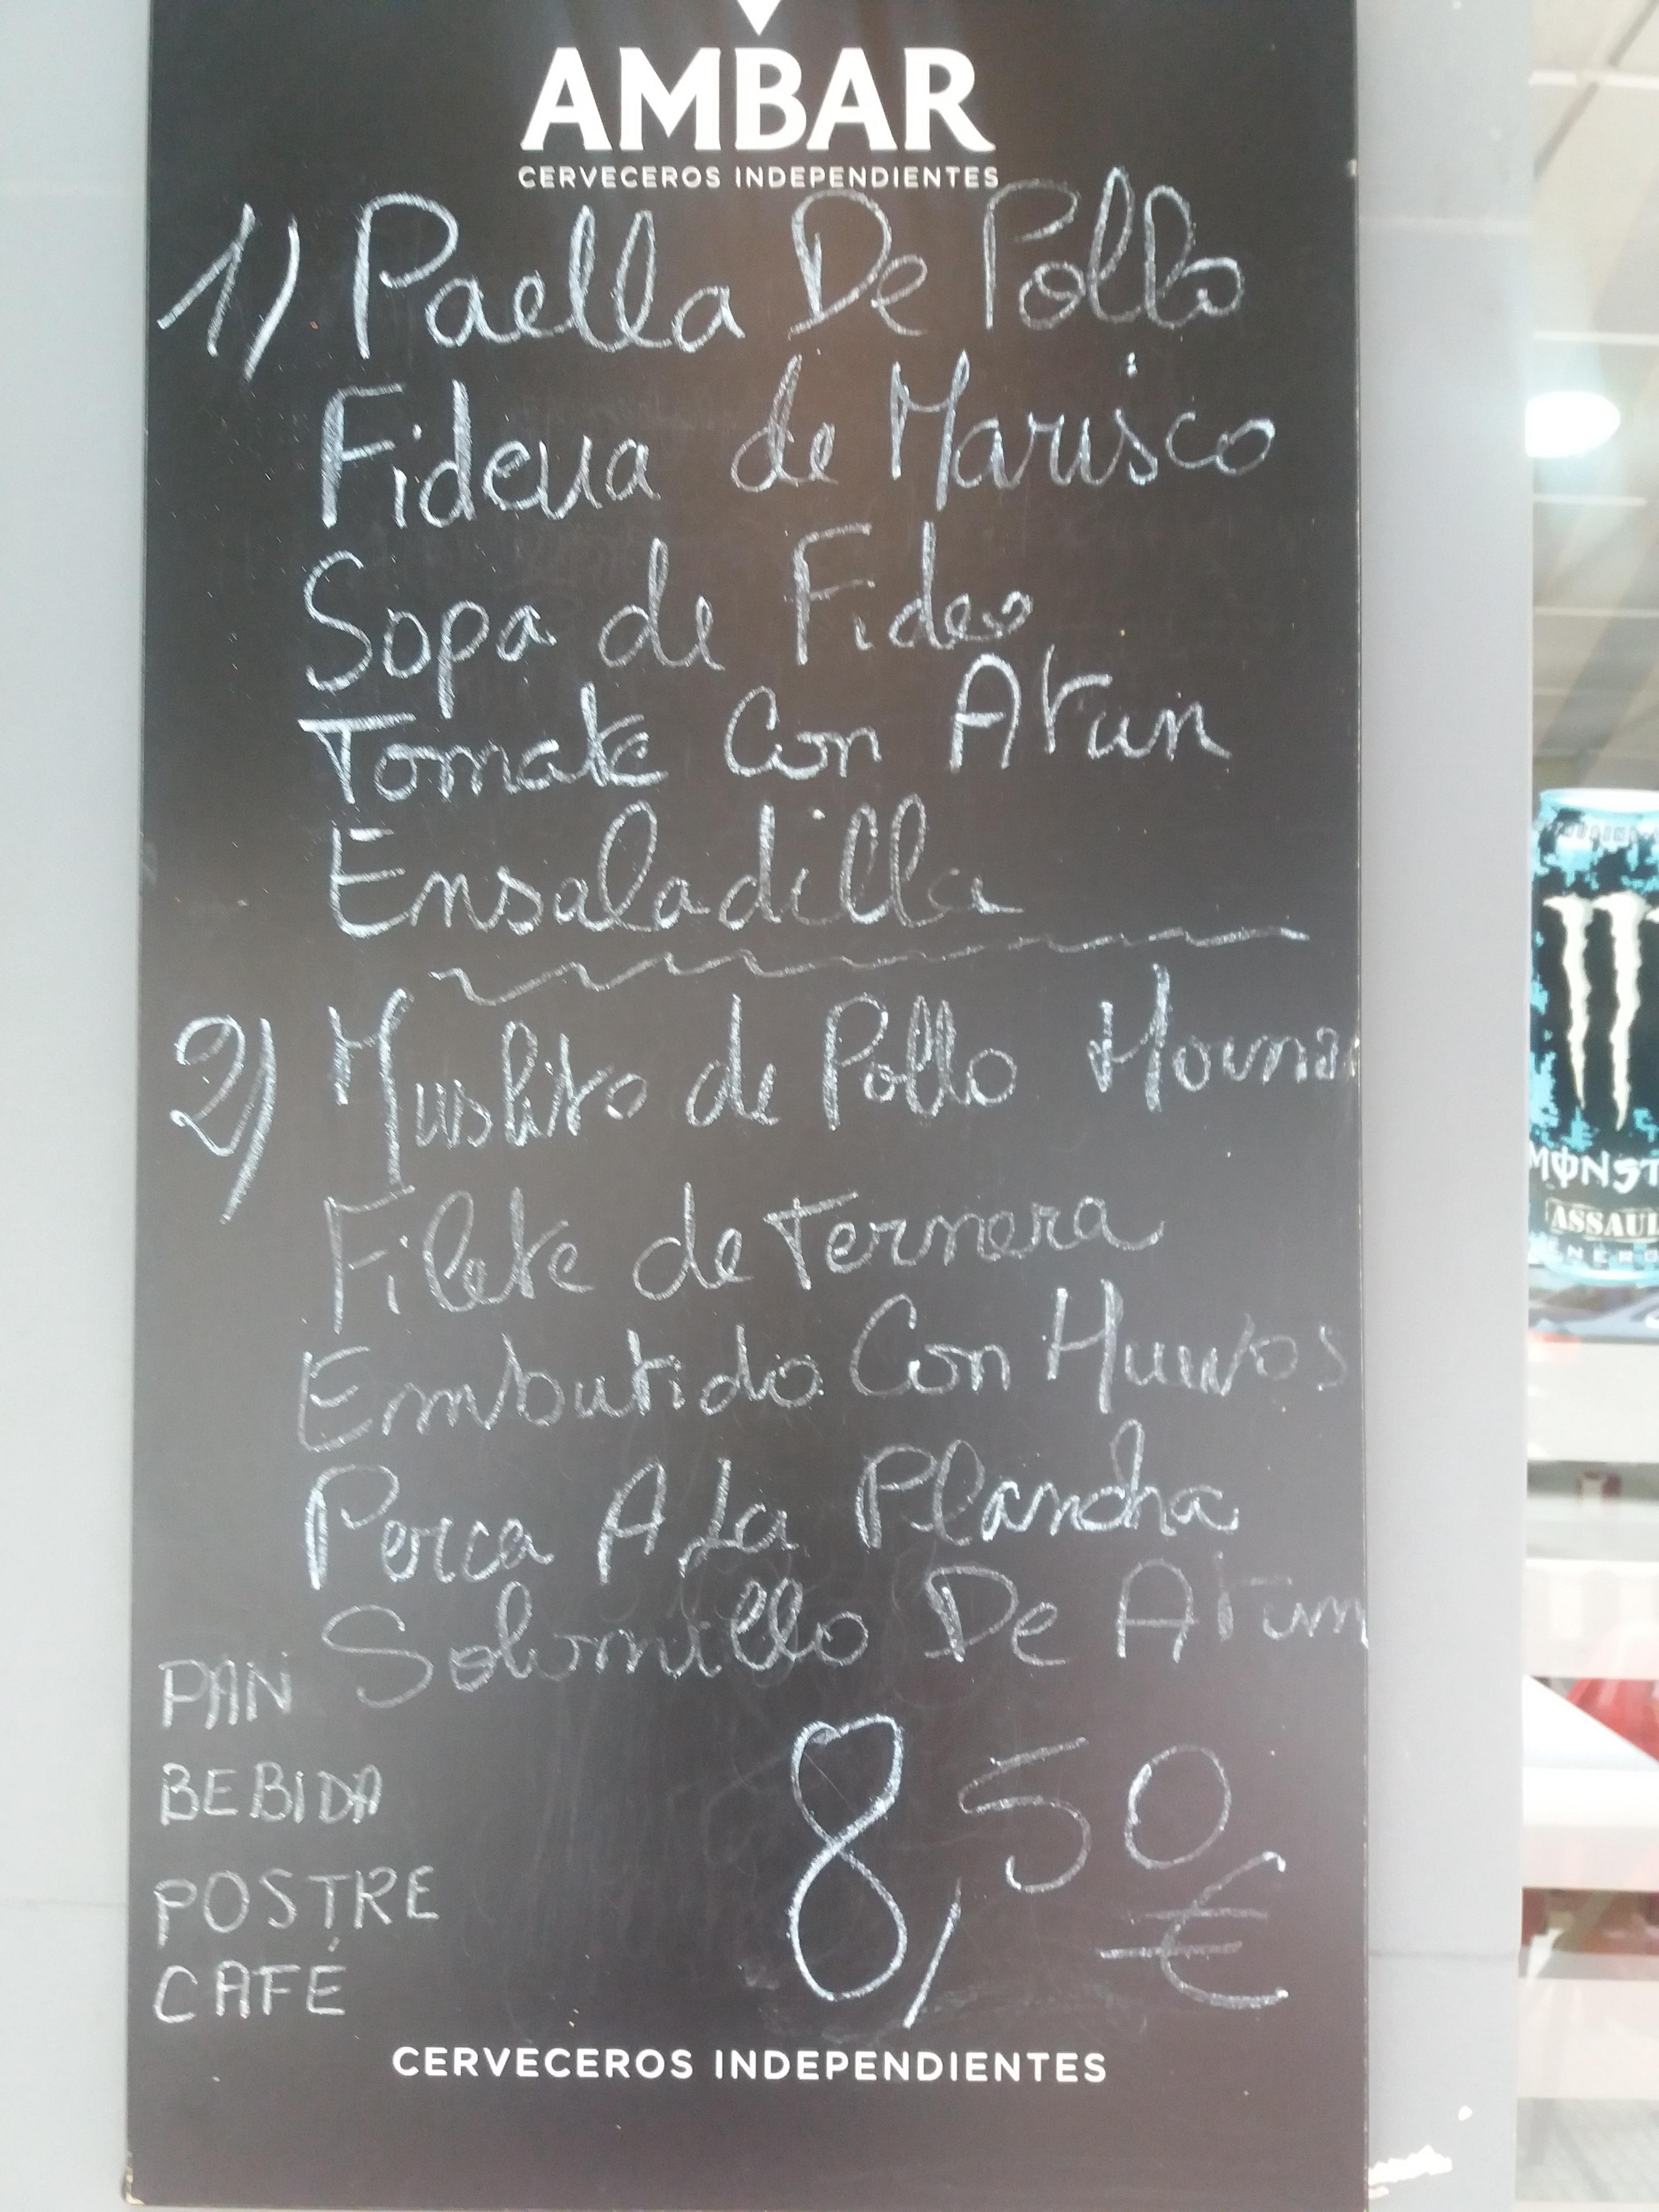 AMBAR
CERVECEROS INDEPENDIENTES
1) Paella De Pollo
Fideua de Marisco
Sopa de Fideo
Tomate Con Atun
Ensaladilla
2) Muslito de Pollo
Filete de Ternera
Embutido Con Huevos
Perca A La Plancha
Solomillo De Atun
PAN
BEBIDA
POSTRE
CAFÉ
8,50
€
CERVECEROS INDEPENDIENTES